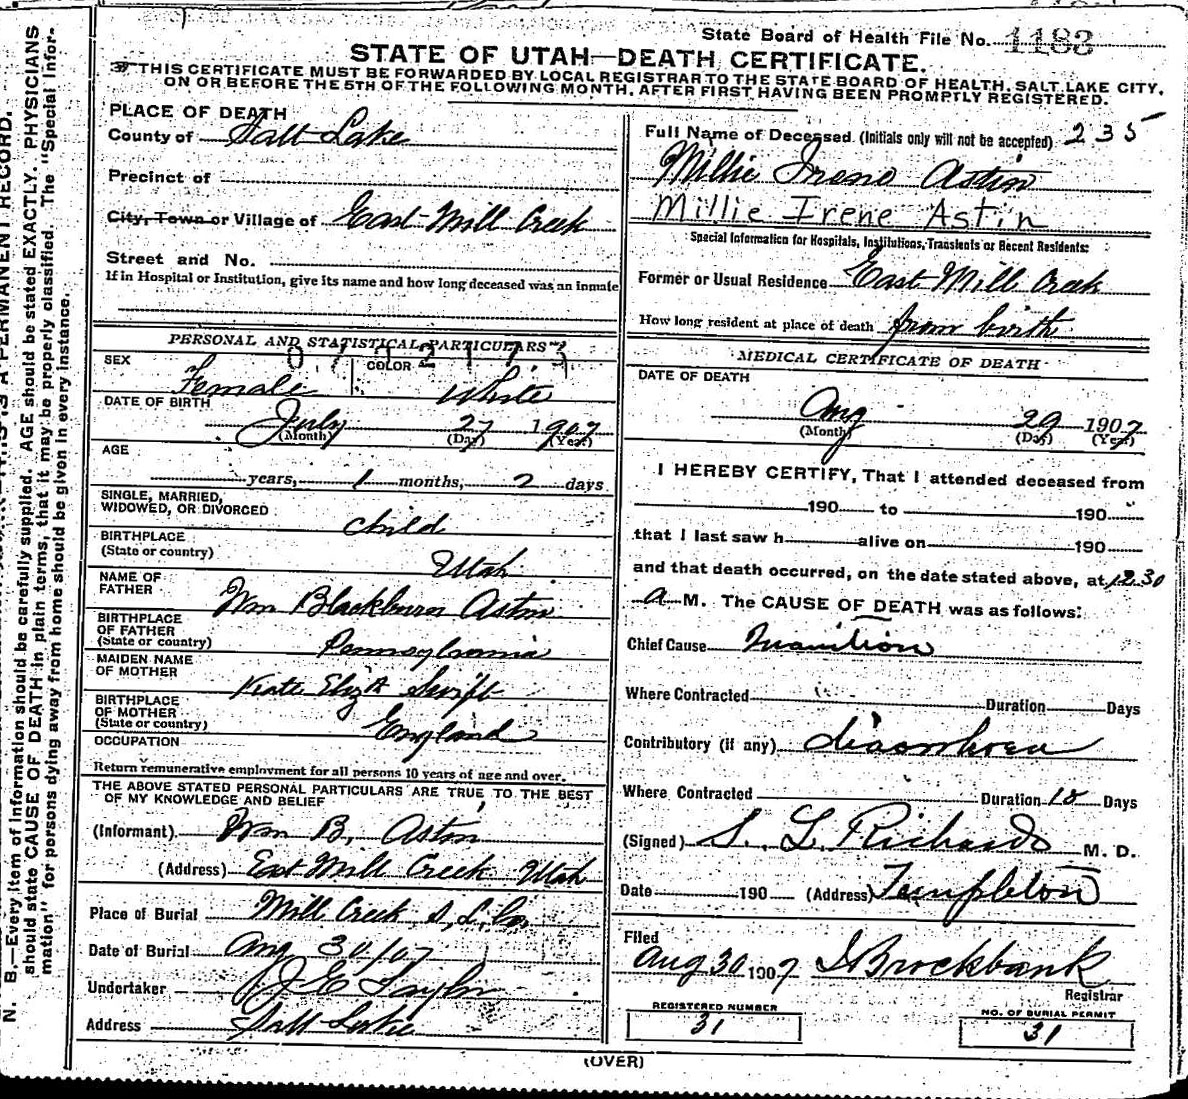 State Board of Health File No. 1183
STATE OF UTAH—DEATH CERTIFICATE.
THIS CERTIFICATE MUST BE FORWARDED BY LOCAL REGISTRAR TO THE STATE BOARD OF HEALTH, SALT LAKE CITY,
ON OR BEFORE THE 5TH OF THE FOLLOWING MONTH, AFTER FIRST HAVING BEEN PROMPTLY REGISTERED.
PLACE OF DEATH
County of Salt Lake
Precinct of
City, Town or Village of East Mill Creek
Street and No.
If in Hospital or Institution, give its name and how long deceased was an inmate
PERSONAL AND STATISTICAL PARTICULARS
SEX Female
COLOR White
DATE OF BIRTH
July 27 1907
(Month) (Day) (Year)
AGE
years, 1 months, 2 days
SINGLE, MARRIED,
WIDOWED, OR DIVORCED child
BIRTHPLACE
(State or country) Utah
NAME OF
FATHER Wm Blackburn Astin
BIRTHPLACE
OF FATHER
(State or country) Pennsylvania
MAIDEN NAME
OF MOTHER Kate Elizth Swift
BIRTHPLACE
OF MOTHER
(State or country) England
OCCUPATION
Return remunerative employment for all persons 10 years of age and over.
THE ABOVE STATED PERSONAL PARTICULARS ARE TRUE TO THE BEST
OF MY KNOWLEDGE AND BELIEF
(Informant) Wm B. Astin
(Address) East Mill Creek Utah
Place of Burial Mill Creek S. L. Co.
Date of Burial Aug 30/07
Undertaker J E Taylor
Address Salt Lake
Full Name of Deceased (Initials only will not be accepted) 235
Millie Irene Astin
Millie Irene Astin
Special Information for Hospitals, Institutions, Transients or Recent Residents:
Former or Usual Residence East Mill Creek
How long resident at place of death from birth
MEDICAL CERTIFICATE OF DEATH
DATE OF DEATH
Aug 29 1907
(Month) (Day) (Year)
I HEREBY CERTIFY, That I attended deceased from
190 to 190
that I last saw h alive on 190
and that death occurred, on the date stated above, at 12.30
a M. The CAUSE OF DEATH was as follows:
Chief Cause Inanition
Where Contracted Duration Days
Contributory (if any) diaorrhoea
Where Contracted Duration 18 Days
(Signed) S. L. Richards M. D.
Date 190 (Address) Templeton
Filed
Aug 30 1907 I Brockbank
Registrar
REGISTERED NUMBER
31
NO. OF BURIAL PERMIT
31
(OVER)
N. B.—Every item of information should be carefully supplied. AGE should be stated EXACTLY. PHYSICIANS
should state CAUSE OF DEATH in plain terms, that it may be properly classified. The "Special Infor-
mation" for persons dying away from home should be given in every instance.